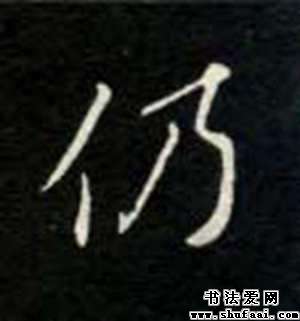 仍
书法爱网
www.shufaai.com